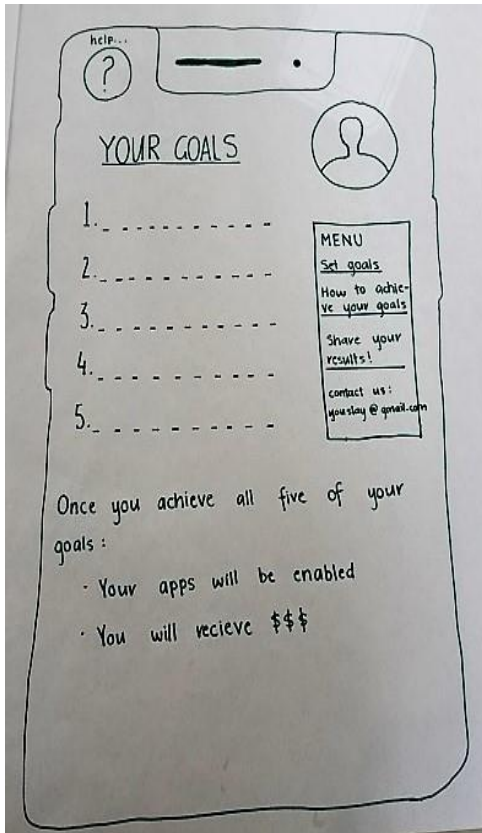 help...
?
YOUR GOALS
1. _ _ _ _ _ _ _ _ _ _
2. _ _ _ _ _ _ _ _ _ _
3. _ _ _ _ _ _ _ _ _ _
4. _ _ _ _ _ _ _ _ _
5. _ _ _ _ _ _ _ _ _
MENU
Set goals
How to achie-
ve your goals
Share your
results!
contact us:
youslay@gmail.com
Once you achieve all five of your
goals:
· Your apps will be enabled
· You will recieve $$$